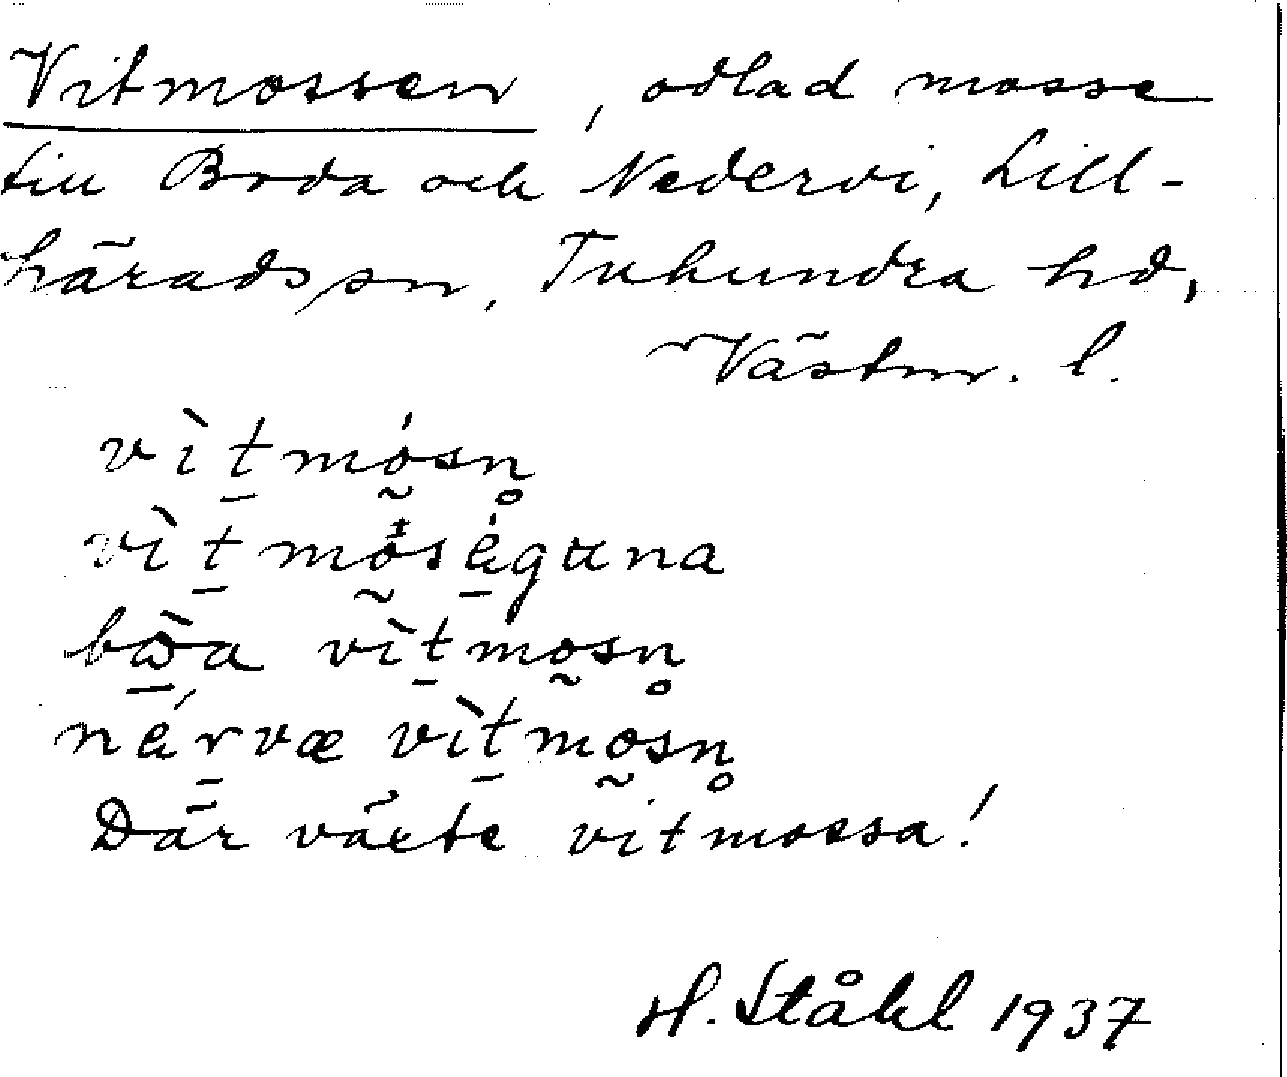 Vitmossen, odlad mosse
till Boda och Nedervi, Lill-
härads sn, Tuhundra hd,
Västm. l.
vìt̠mó̰sn̥
vìt̠mo̰sé̠guna
bò̠a vìt̠mo̰sn̥
nér̠væ vìt̠mo̰sn̥
Där växte vitmossa!
H. Ståhl 1937